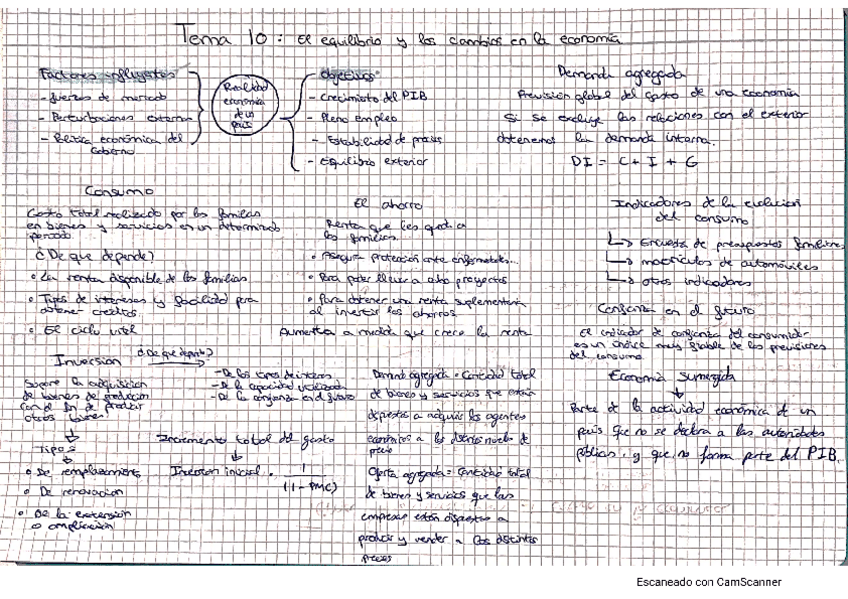 Tema 10: El equilibrio y los cambios en la economía
Factores influyentes
- fuerzas de mercado
- Perturbaciones externas
- Política económica del
Gobierno
Realidad
economía
de un
país
Objetivos
- Crecimiento del PIB
- Pleno empleo
- Estabilidad de precios
- Equilibrio exterior
Demanda agregada
Previsión global del gasto de una economía
Si se excluye las relaciones con el exterior
obtenemos la demanda interna.
DI = C + I + G
Consumo
Gasto total realizado por las familias
en bienes y servicios en un determinado
periodo
¿De que depende?
• La renta disponible de las familias
• Tipos de intereses y facilidad para
obtener creditos.
• El ciclo vital
El ahorro
Renta que les queda a
las familias.
• Asegurar protección ante enfermedades...
• Para poder llevar a cabo proyectos
• Para obtener una renta suplementaria
al invertir los ahorros
Aumenta a medida que crece la renta
Indicadores de la evolucion
del consumo
↳ Encuesta de presupuestos familiares
↳ matrículas de automóviles
↳ otros indicadores
Confianza en el futuro
El indicador de confianza del consumidor
es un índice muy fiable de las previsiones
del consumo
Inversion ¿De que depende?
- De los tipos de interes
- De la capacidad utilizada
- De la confianza en el futuro
Supone la adquisicion
de bienes de produccion
con el fin de producir
otros bienes
Tipos
• De remplazamiento
• De renovacion
• De la extension
o ampliacion
Incremento total del gasto
Inversion inicial . 1
(1-PMC)
Demanda agregada = Cantidad total
de bienes y servicios que estan
dispuestos a adquirir los agentes
económicos a los distintos niveles de
precio
Oferta agregada = Cantidad total
de bienes y servicios que las
empresas están dispuestas a
producir y vender a los distintos
precios
Economía sumergida
Parte de la actividad económica de un
país que no se declara a las autoridades
públicas, y que no forma parte del PIB.
Escaneado con CamScanner